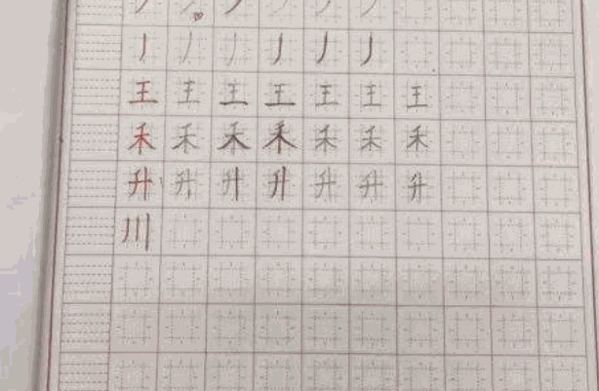 丿 丿 丿 丿 丿 丿
丿 丿 丿 丿 丿 丿
王 王 王 王 王 王 王
禾 禾 禾 禾 禾 禾 禾
升 升 升 升 升 升 升
川